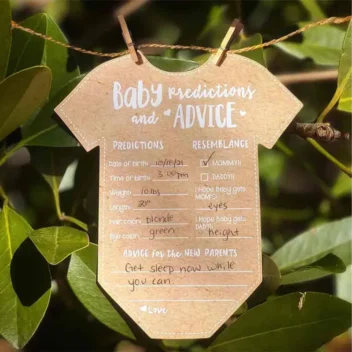 Baby Predictions
and ADVICE
PREDICTIONS
Date of birth: 10/18/21
Time of birth: 3:00pm
Weight: 10 lbs
Length: 21"
Hair color: blonde
Eye color: green
RESEMBLANCE
✓ MOMMY!!
DADDY!
I hope baby gets
MOM'S
eyes
I hope baby gets
DAD'S
height
ADVICE for the NEW PARENTS
Get sleep now while
you can.
Love